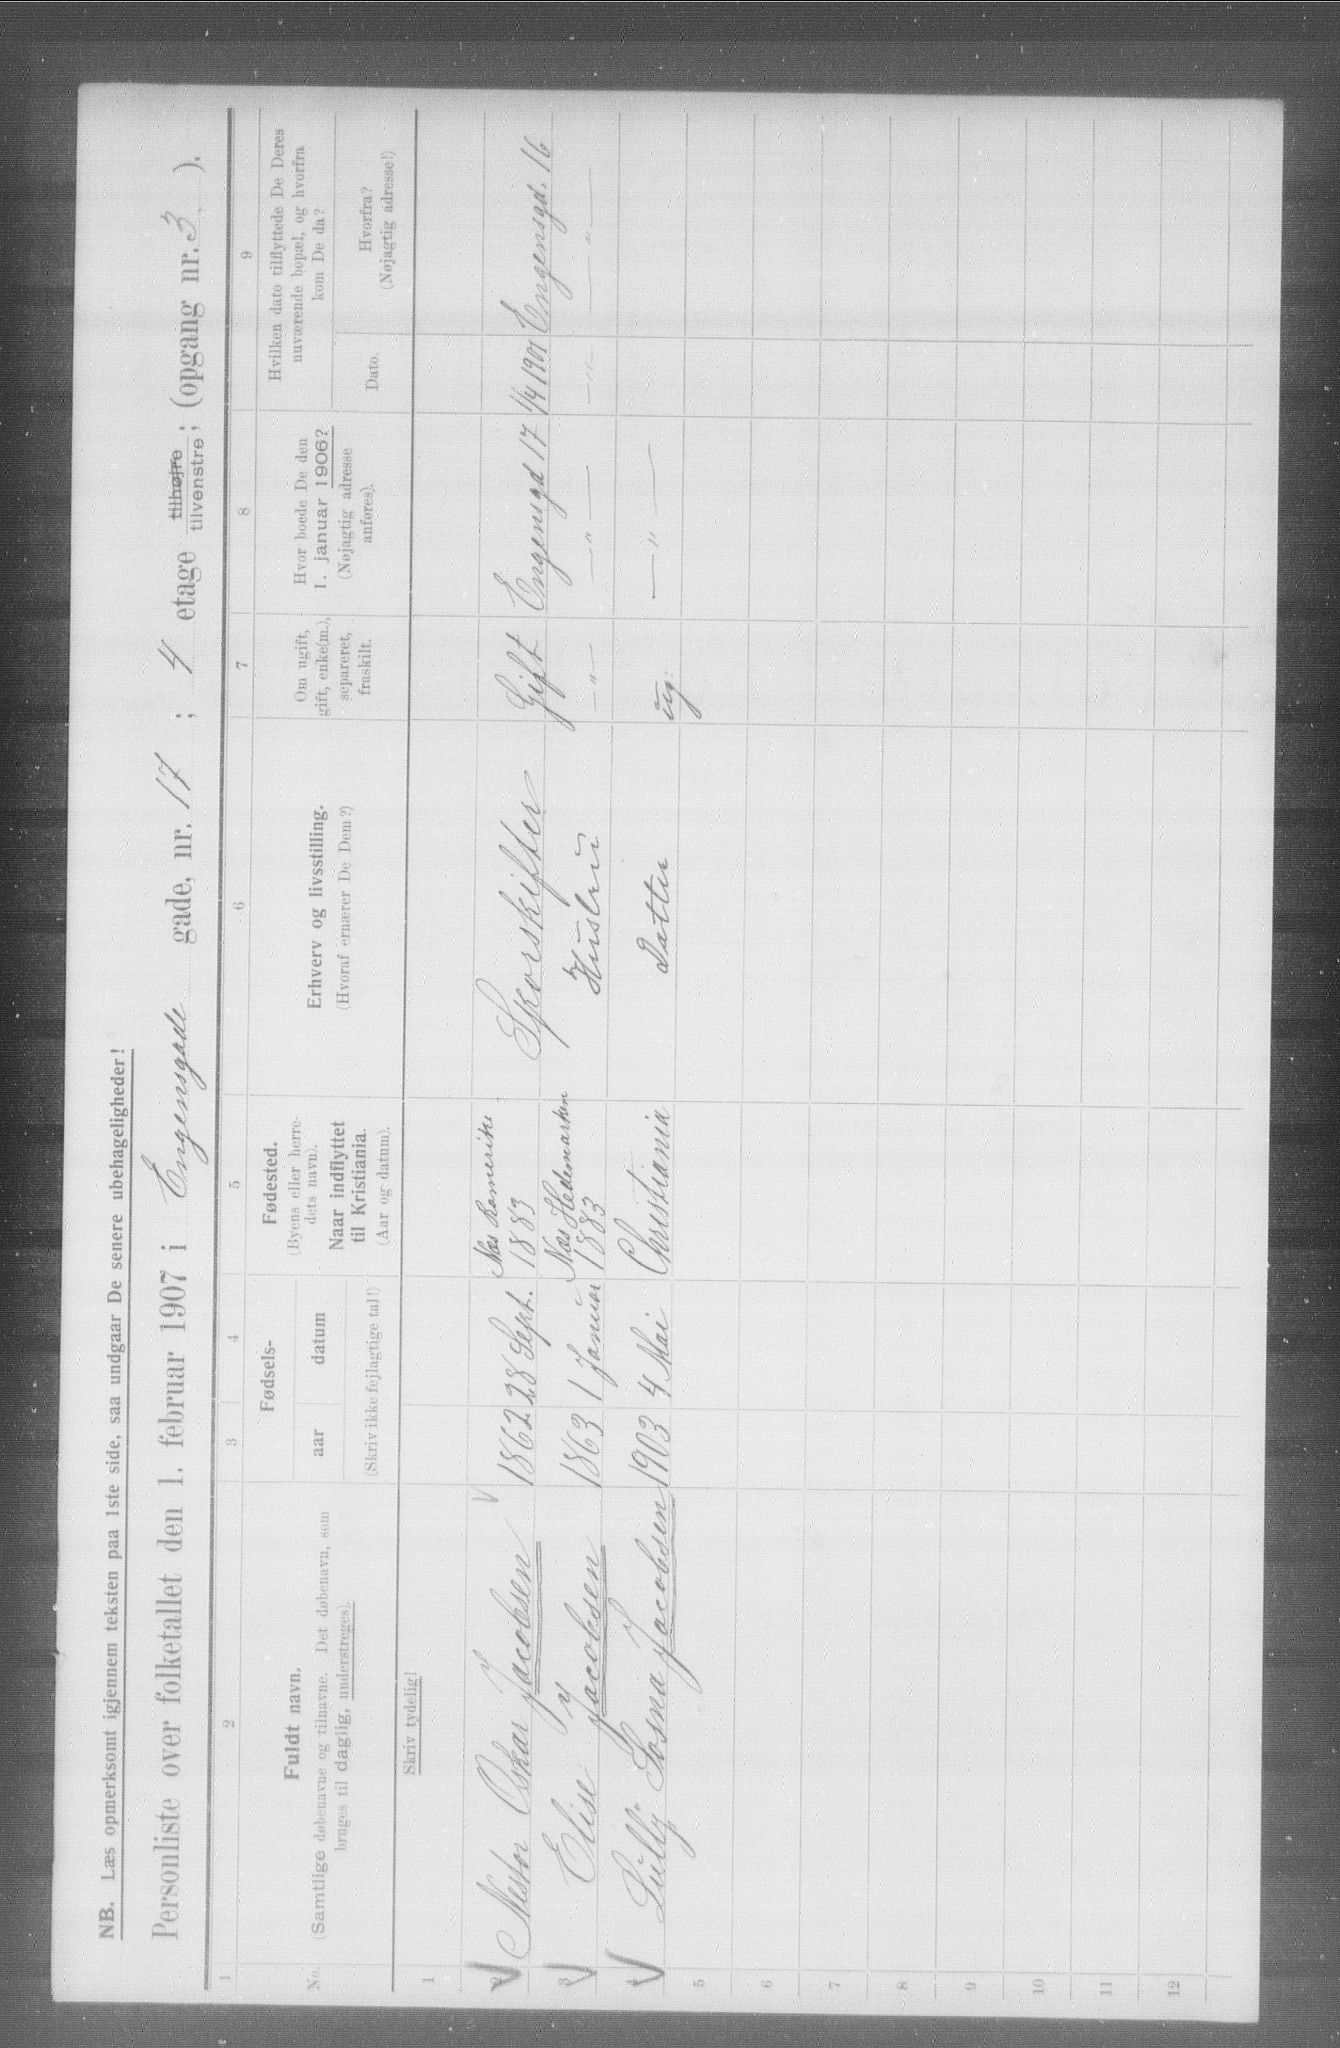 NB. Læs opmerksomt igjennem teksten paa 1ste side, saa undgaar De senere ubehageligheder!
Personliste over folketallet den 1. februar 1907 i Engensgade gade, nr. 17 ; 4 etage tilhøjre tilvenstre ; (opgang nr. 3 ).
1 2 3 4 5 6 7 8 9
No.
Fuldt navn.
(Samtlige døbenavne og tilnavne. Det døbenavn, som
bruges til daglig, understreges).
Fødsels-
aar datum
(Skriv ikke fejlagtige tal!)
Fødested.
(Byens eller herre-
dets navn).
Naar indflyttet
til Kristiania.
(Aar og datum).
Erhverv og livsstilling.
(Hvoraf ernærer De Dem?)
Om ugift,
gift, enke(m.),
separeret,
fraskilt.
Hvor boede De den
1. januar 1906?
(Nøjagtig adresse
anføres).
Hvilken dato tilflyttede De Deres
nuværende bopæl, og hvorfra
kom De da?
Dato.
Hvorfra?
(Nøjagtig adresse!)
Skriv tydelig!
1
2 Nestor Oskar Jacobsen 1862 28 Sept. Næs Romerike 1883 Sporskifter Gift Engensgd 17 1/4 1901 Engensgd. 16
3 Elise Jacobsen 1863 1 Januar Næs Hedemarken 1883 Hustru — " — — " — — " — — " —
Lully Sosna Jacobsen 1903 4 Mai Christiania Datter ug. — " —
5
6
7
8
9
10
11
12